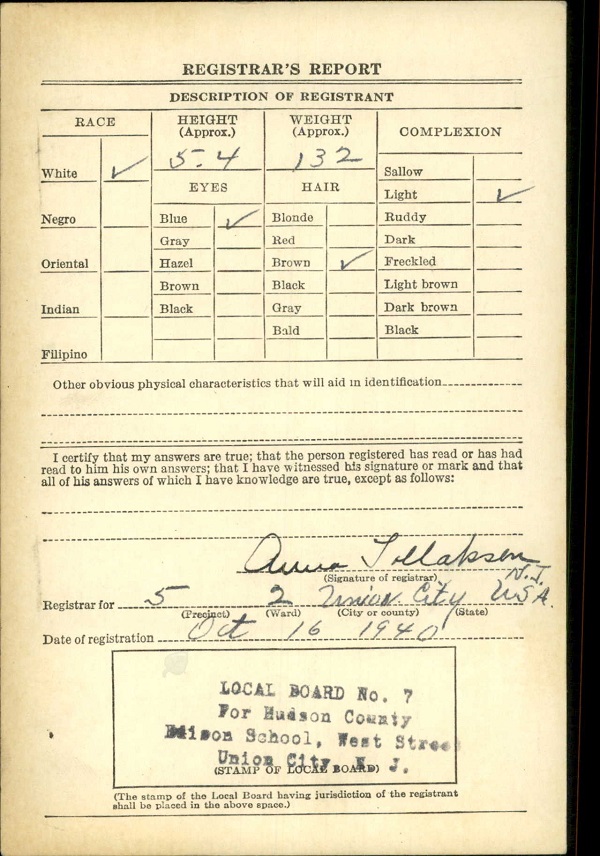 REGISTRAR'S REPORT
DESCRIPTION OF REGISTRANT
RACE
HEIGHT
(Approx.)
WEIGHT
(Approx.)
COMPLEXION
5-4
132
White ✓
Sallow
EYES
HAIR
Light ✓
Negro
Blue ✓
Blonde
Ruddy
Gray
Red
Dark
Oriental
Hazel
Brown ✓
Freckled
Brown
Black
Light brown
Indian
Black
Gray
Dark brown
Bald
Black
Filipino
Other obvious physical characteristics that will aid in identification
I certify that my answers are true; that the person registered has read or has had
read to him his own answers; that I have witnessed his signature or mark and that
all of his answers of which I have knowledge are true, except as follows:
Anna Tollaksen
(Signature of registrar)
N.J.
Registrar for 5 2 Union City USA.
(Precinct) (Ward) (City or county) (State)
Date of registration Oct 16 1940
LOCAL BOARD No. 7
For Hudson County
Edison School, West Stree
Union City, N. J.
(STAMP OF LOCAL BOARD)
(The stamp of the Local Board having jurisdiction of the registrant
shall be placed in the above space.)